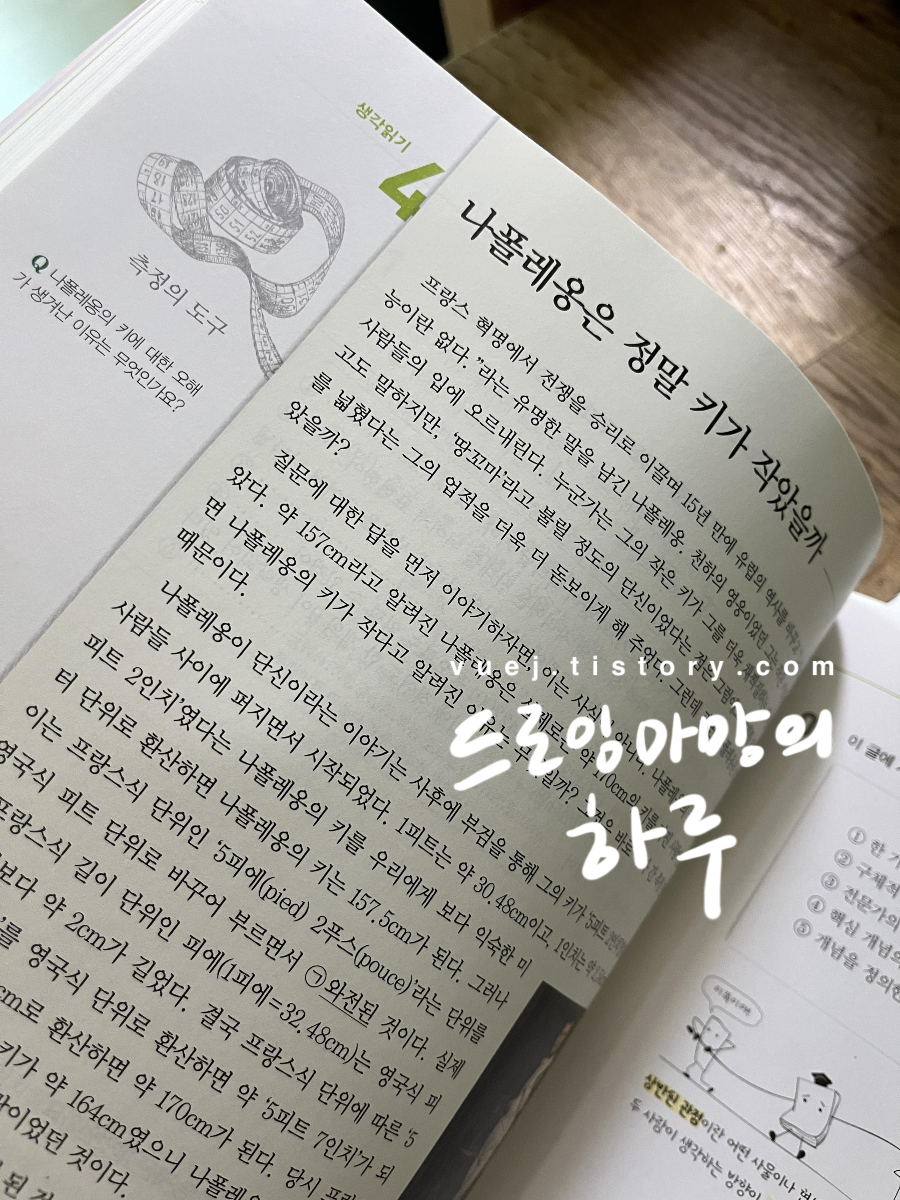 생각읽기
4
측정의 도구
Q 나폴레옹의 키에 대한 오해
가 생겨난 이유는 무엇인가요?
나폴레옹은 정말 키가 작았을까
프랑스 혁명에서 전쟁을 승리로 이끌며 15년 만에 유럽의 역사를 바꾸고
능이란 없다.”라는 유명한 말을 남긴 나폴레옹. 천하의 영웅이었던 그는
사람들의 입에 오르내린다. 누군가는 그의 작은 키가 그를 더욱
고도 말하지만, ‘땅꼬마’라고 불릴 정도의 단신이었다는 것은 그럼에
를 넓혔다는 그의 업적을 더욱 더 돋보이게 해 주었다. 그런데
았을까?
질문에 대한 답을 먼저 이야기하자면, 이는 사실이 아니다. 나폴레옹
았다. 약 157cm라고 알려진 나폴레옹은 실제로 약 170cm의 키를
면 나폴레옹의 키가 작다고 알려진 이유는 그것은 바로
때문이다.
나폴레옹이 단신이라는 이야기는 사후에 부검을 통해 그의 키가 ‘5피트
사람들 사이에 퍼지면서 시작되었다. 1피트는 약 30.48cm이고, 1인치는 약
피트 2인치’였다는 나폴레옹의 키를 우리에게 보다 익숙한 미
터 단위로 환산하면 나폴레옹의 키는 157.5cm가 된다. 그러나
이는 프랑스식 단위인 ‘5피에(pied) 2푸스(pouce)’라는 단위를
영국식 피트 단위로 바꾸어 부르면서 ㉠와전된 것이다. 실제
프랑스식 길이 단위인 피에(1피에=32.48cm)는 영국식 피
보다 약 2cm가 길었다. 결국 프랑스식 단위에 따른 ‘5
를 영국식 단위로 환산하면 약 ‘5피트 7인치’가 되
cm로 환산하면 약 170cm가 된다. 당시 프랑
키가 약 164cm였으니 나폴레옹
이었던 것이다.
vuej.tistory.com
드로잉마망의
하루
이 글에
① 한 가
② 구체적
③ 전문가의
④ 핵심 개념
⑤ 개념을 정의한
상반된 관점이란 어떤 사물이나
두 사람이 생각하는 방향이